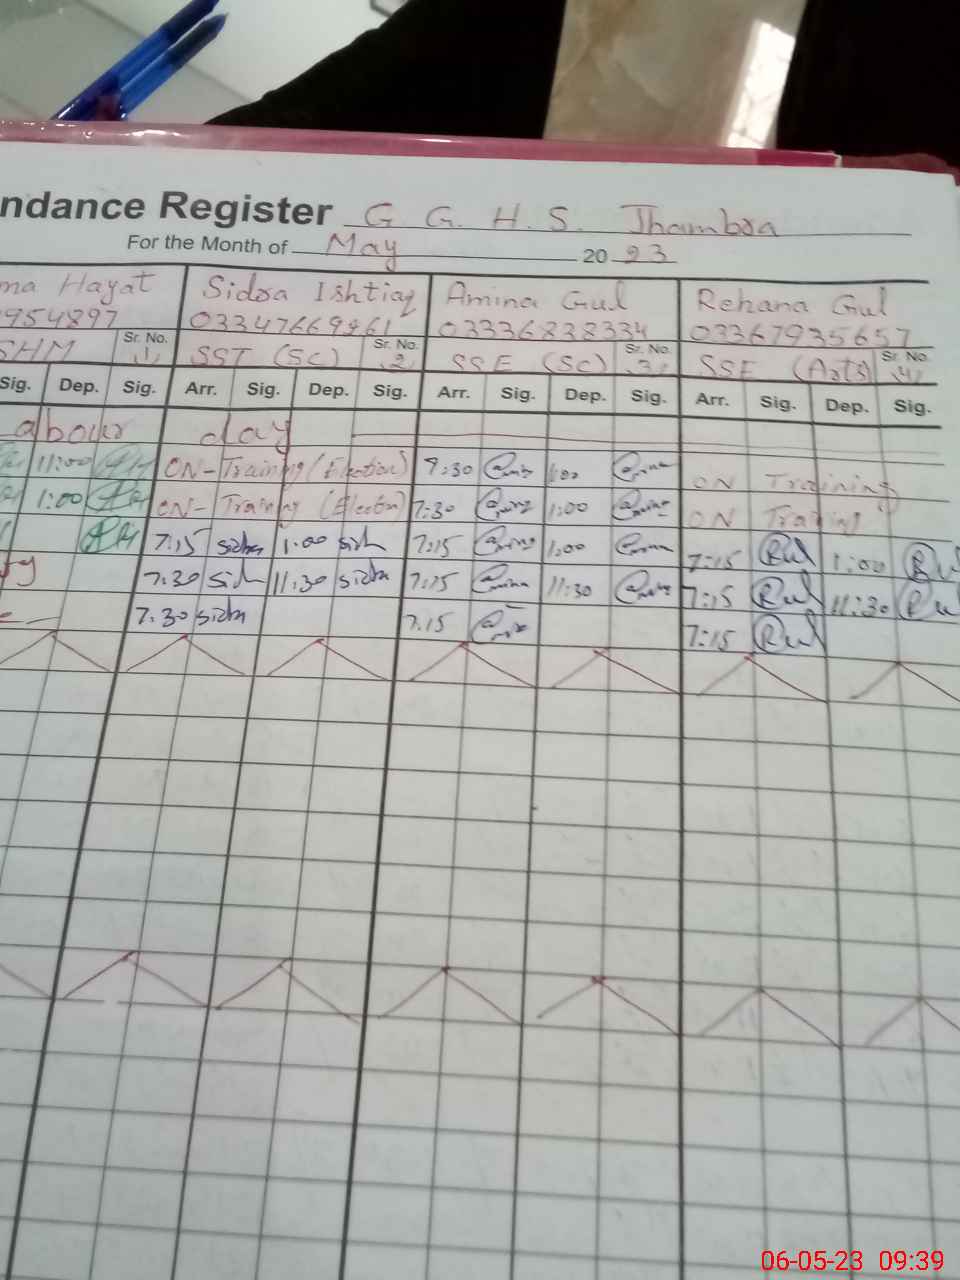 ndance Register G. G. H. S. Jhambra
For the Month of May 2023
ma Hayat Sidra Ishtiaq Amina Gul Rehana Gul
954897 03347669961 03336838334 03367935657
SHM Sr. No. 1 SST (SC) Sr. No. 2 SSE (SC) Sr. No. 3 SSE (Arts) Sr. No. 4
Sig. Dep. Sig. Arr. Sig. Dep. Sig. Arr. Sig. Dep. Sig. Arr. Sig. Dep. Sig.
abour day
11:00 ON-Training (Election) 7:30 1:00 ON Training
1:00 ON-Training (Electon) 7:30 1:00 ON Training
7:15 sidra 1:00 7:15 1:00 7:15 1:00
7:30 11:30 sidra 7:15 11:30 7:15 11:30
7.30 sidra 7.15 7:15
06-05-23 09:39